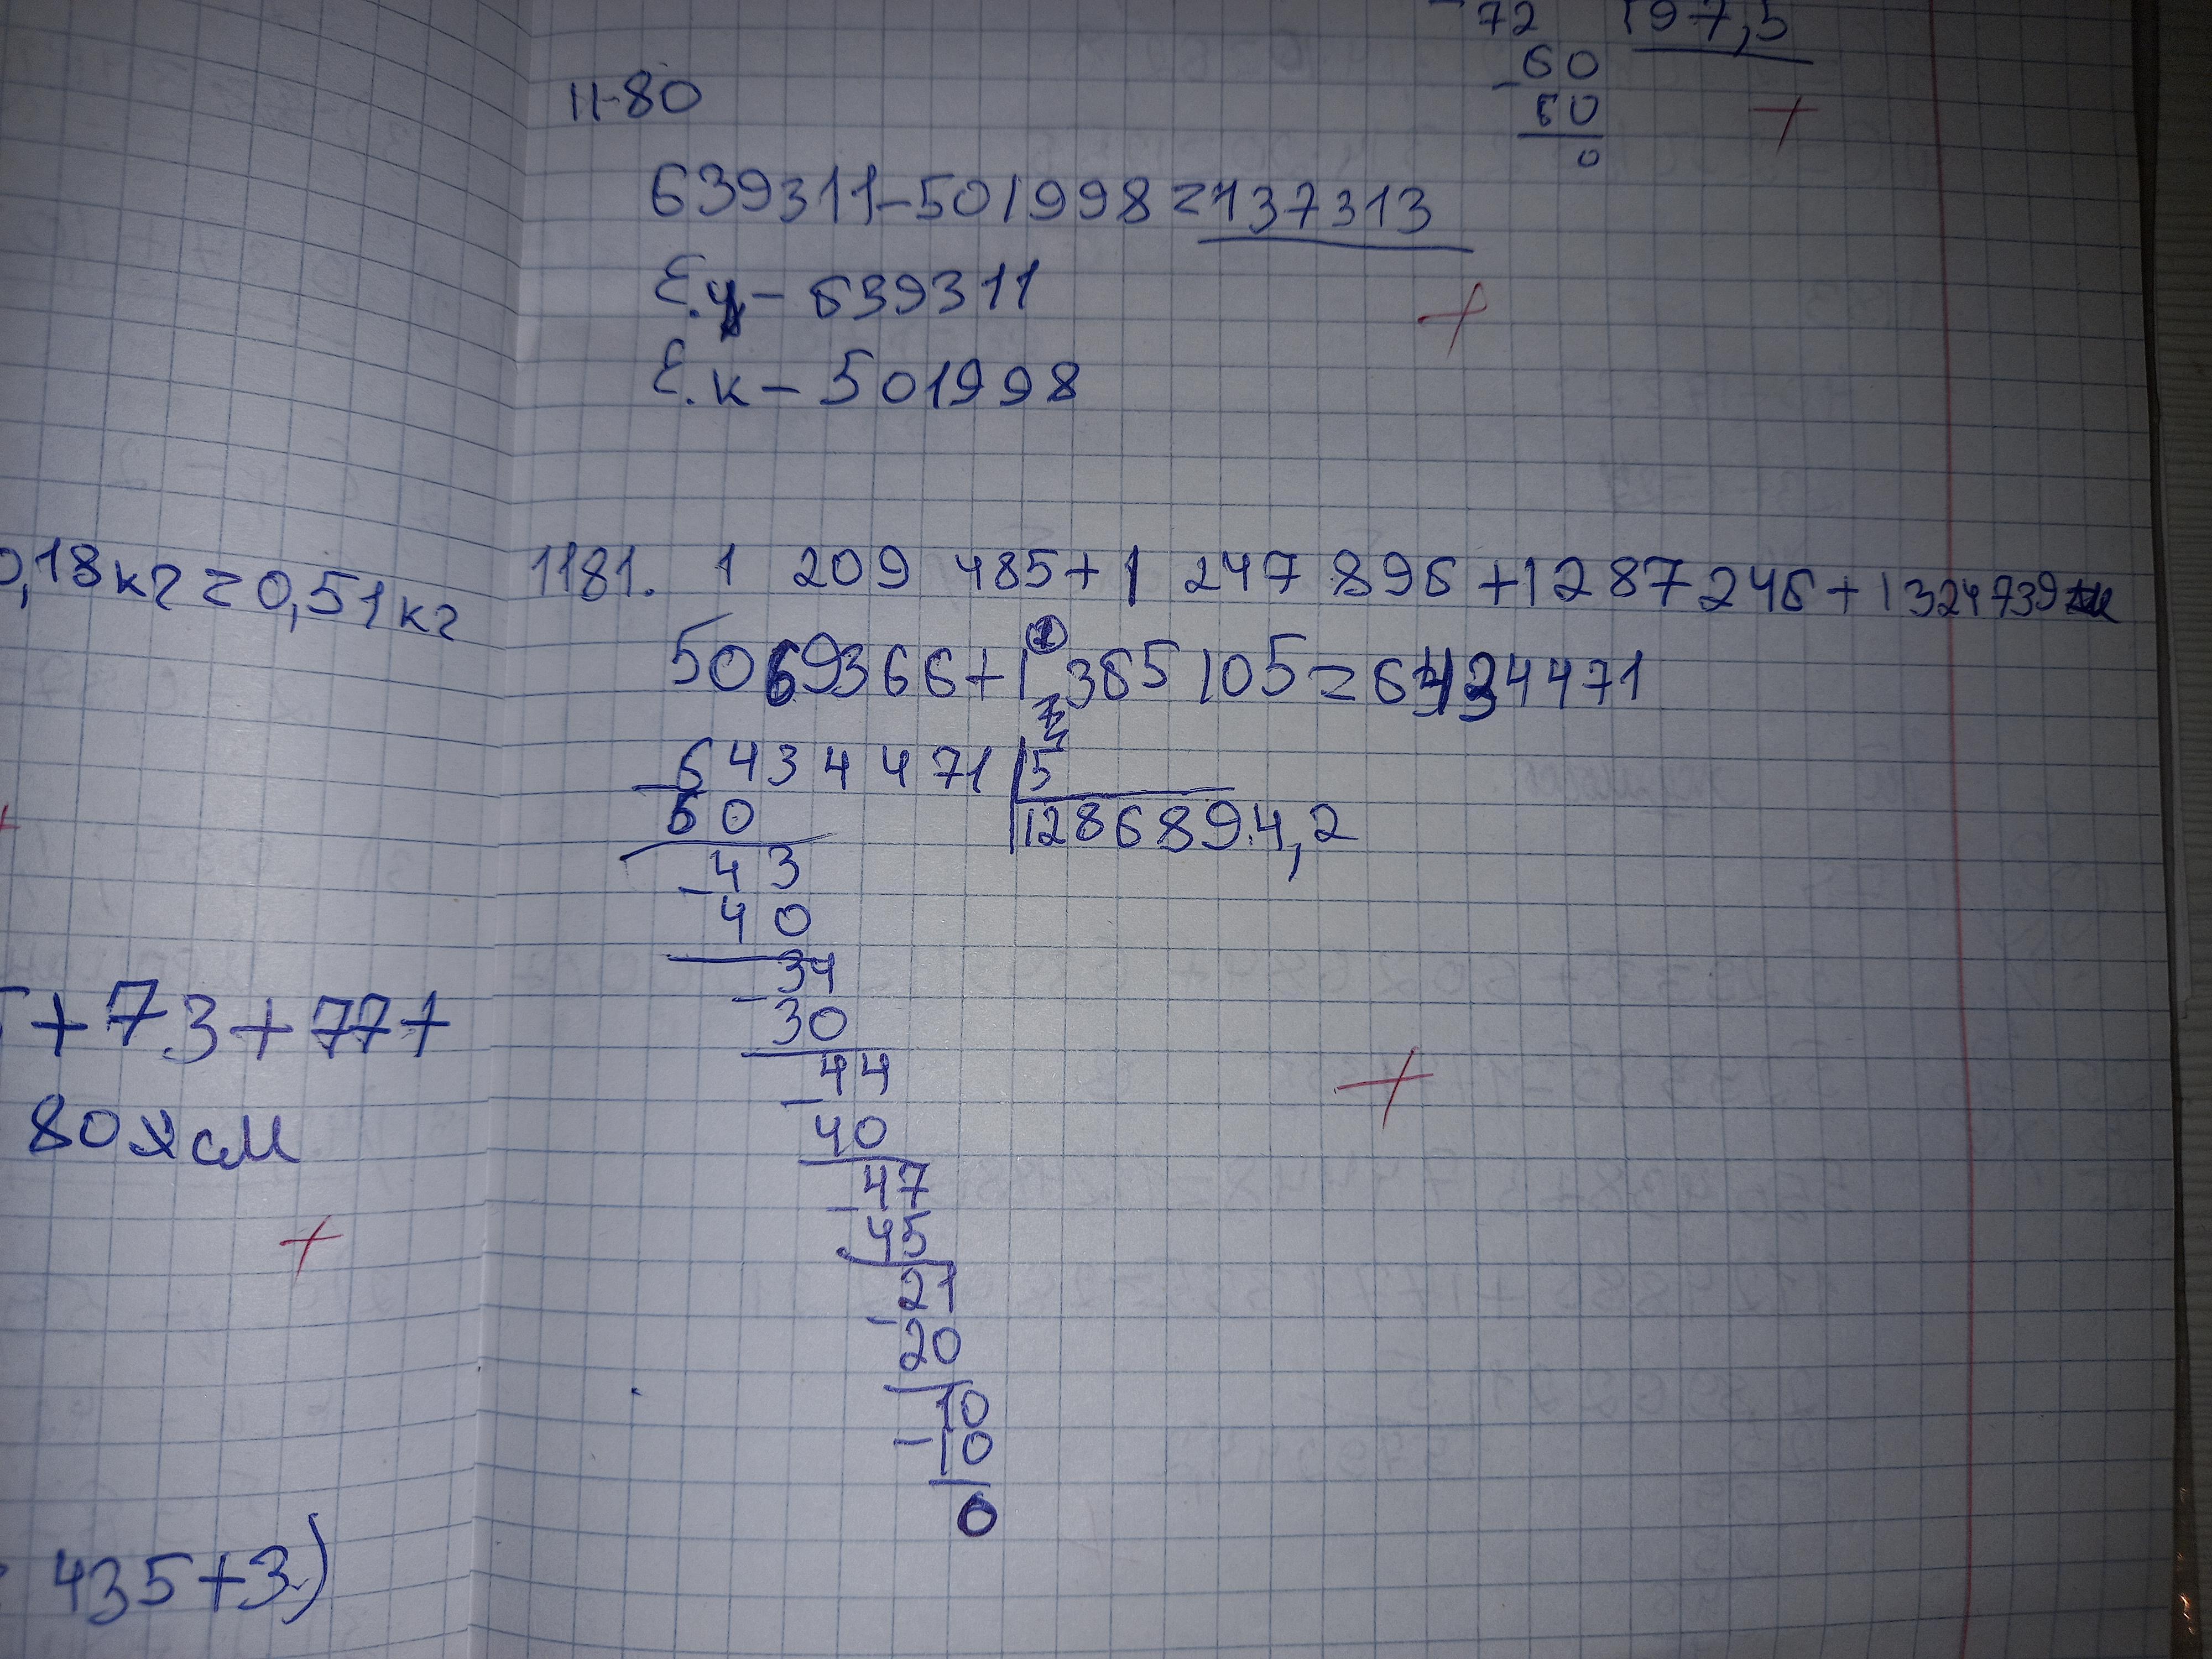 0,18кг=0,51кг
+73+771
80 см
435+3)
72 197,5
- 60
60
0
1180
639311-501998=137313
Е.у - 639311
Е.к - 501998
1181. 1 209 485+1 247 896+1287246+1324739
5069366+1 365 105=6434471
6434471 5
50 1286894,2
43
40
34
30
44
40
47
45
21
20
10
10
0